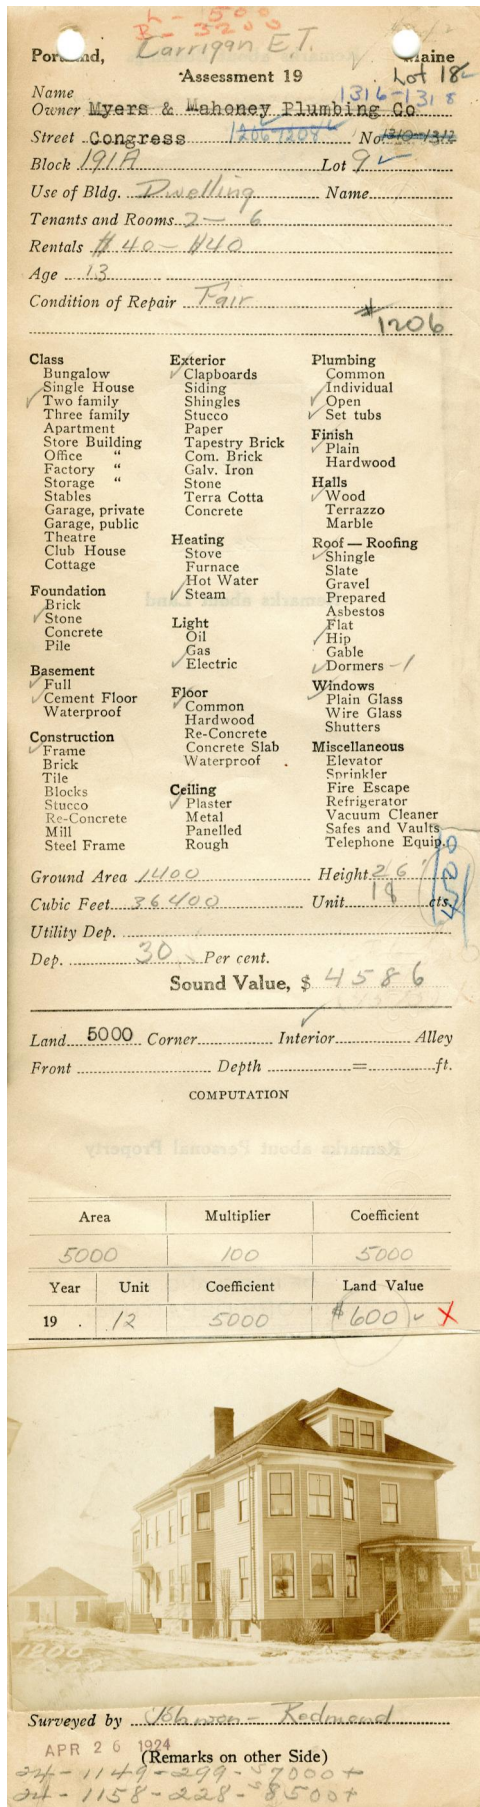 L - 500
B - 3200
Carrigan E.T.
Portland, Maine
Assessment 19 Lot 18
Name 1316-1318
Owner Myers & Mahoney Plumbing Co
Street Congress 1206-1208 No. 1310-1312
Block 191A Lot 9
Use of Bldg. Dwelling Name
Tenants and Rooms 2 - 6
Rentals $40 - $40
Age 13
Condition of Repair Fair
#1206
Class
Bungalow
Single House
Two family
Three family
Apartment
Store Building
Office "
Factory "
Storage "
Stables
Garage, private
Garage, public
Theatre
Club House
Cottage
Foundation
Brick
Stone
Concrete
Pile
Basement
Full
Cement Floor
Waterproof
Construction
Frame
Brick
Tile
Blocks
Stucco
Re-Concrete
Mill
Steel Frame
Exterior
Clapboards
Siding
Shingles
Stucco
Paper
Tapestry Brick
Com. Brick
Galv. Iron
Stone
Terra Cotta
Concrete
Heating
Stove
Furnace
Hot Water
Steam
Light
Oil
Gas
Electric
Floor
Common
Hardwood
Re-Concrete
Concrete Slab
Waterproof
Ceiling
Plaster
Metal
Panelled
Rough
Plumbing
Common
Individual
Open
Set tubs
Finish
Plain
Hardwood
Halls
Wood
Terrazzo
Marble
Roof — Roofing
Shingle
Slate
Gravel
Prepared
Asbestos
Flat
Hip
Gable
Dormers - 1
Windows
Plain Glass
Wire Glass
Shutters
Miscellaneous
Elevator
Sprinkler
Fire Escape
Refrigerator
Vacuum Cleaner
Safes and Vaults
Telephone Equip.
4500
Ground Area 1400 Height 26'
Cubic Feet 36400 Unit 18 cts.
Utility Dep.
Dep. 30 Per cent.
Sound Value, $ 4586
Land 5000 Corner Interior Alley
Front Depth = ft.
COMPUTATION
Area Multiplier Coefficient
5000 100 5000
Year Unit Coefficient Land Value
19 . 12 5000 $600 X
1200
Surveyed by Johnson - Redmond
APR 26 1924
(Remarks on other Side)
24 - 1149 - 299 - $7000+
24 - 1158 - 228 - $8500+